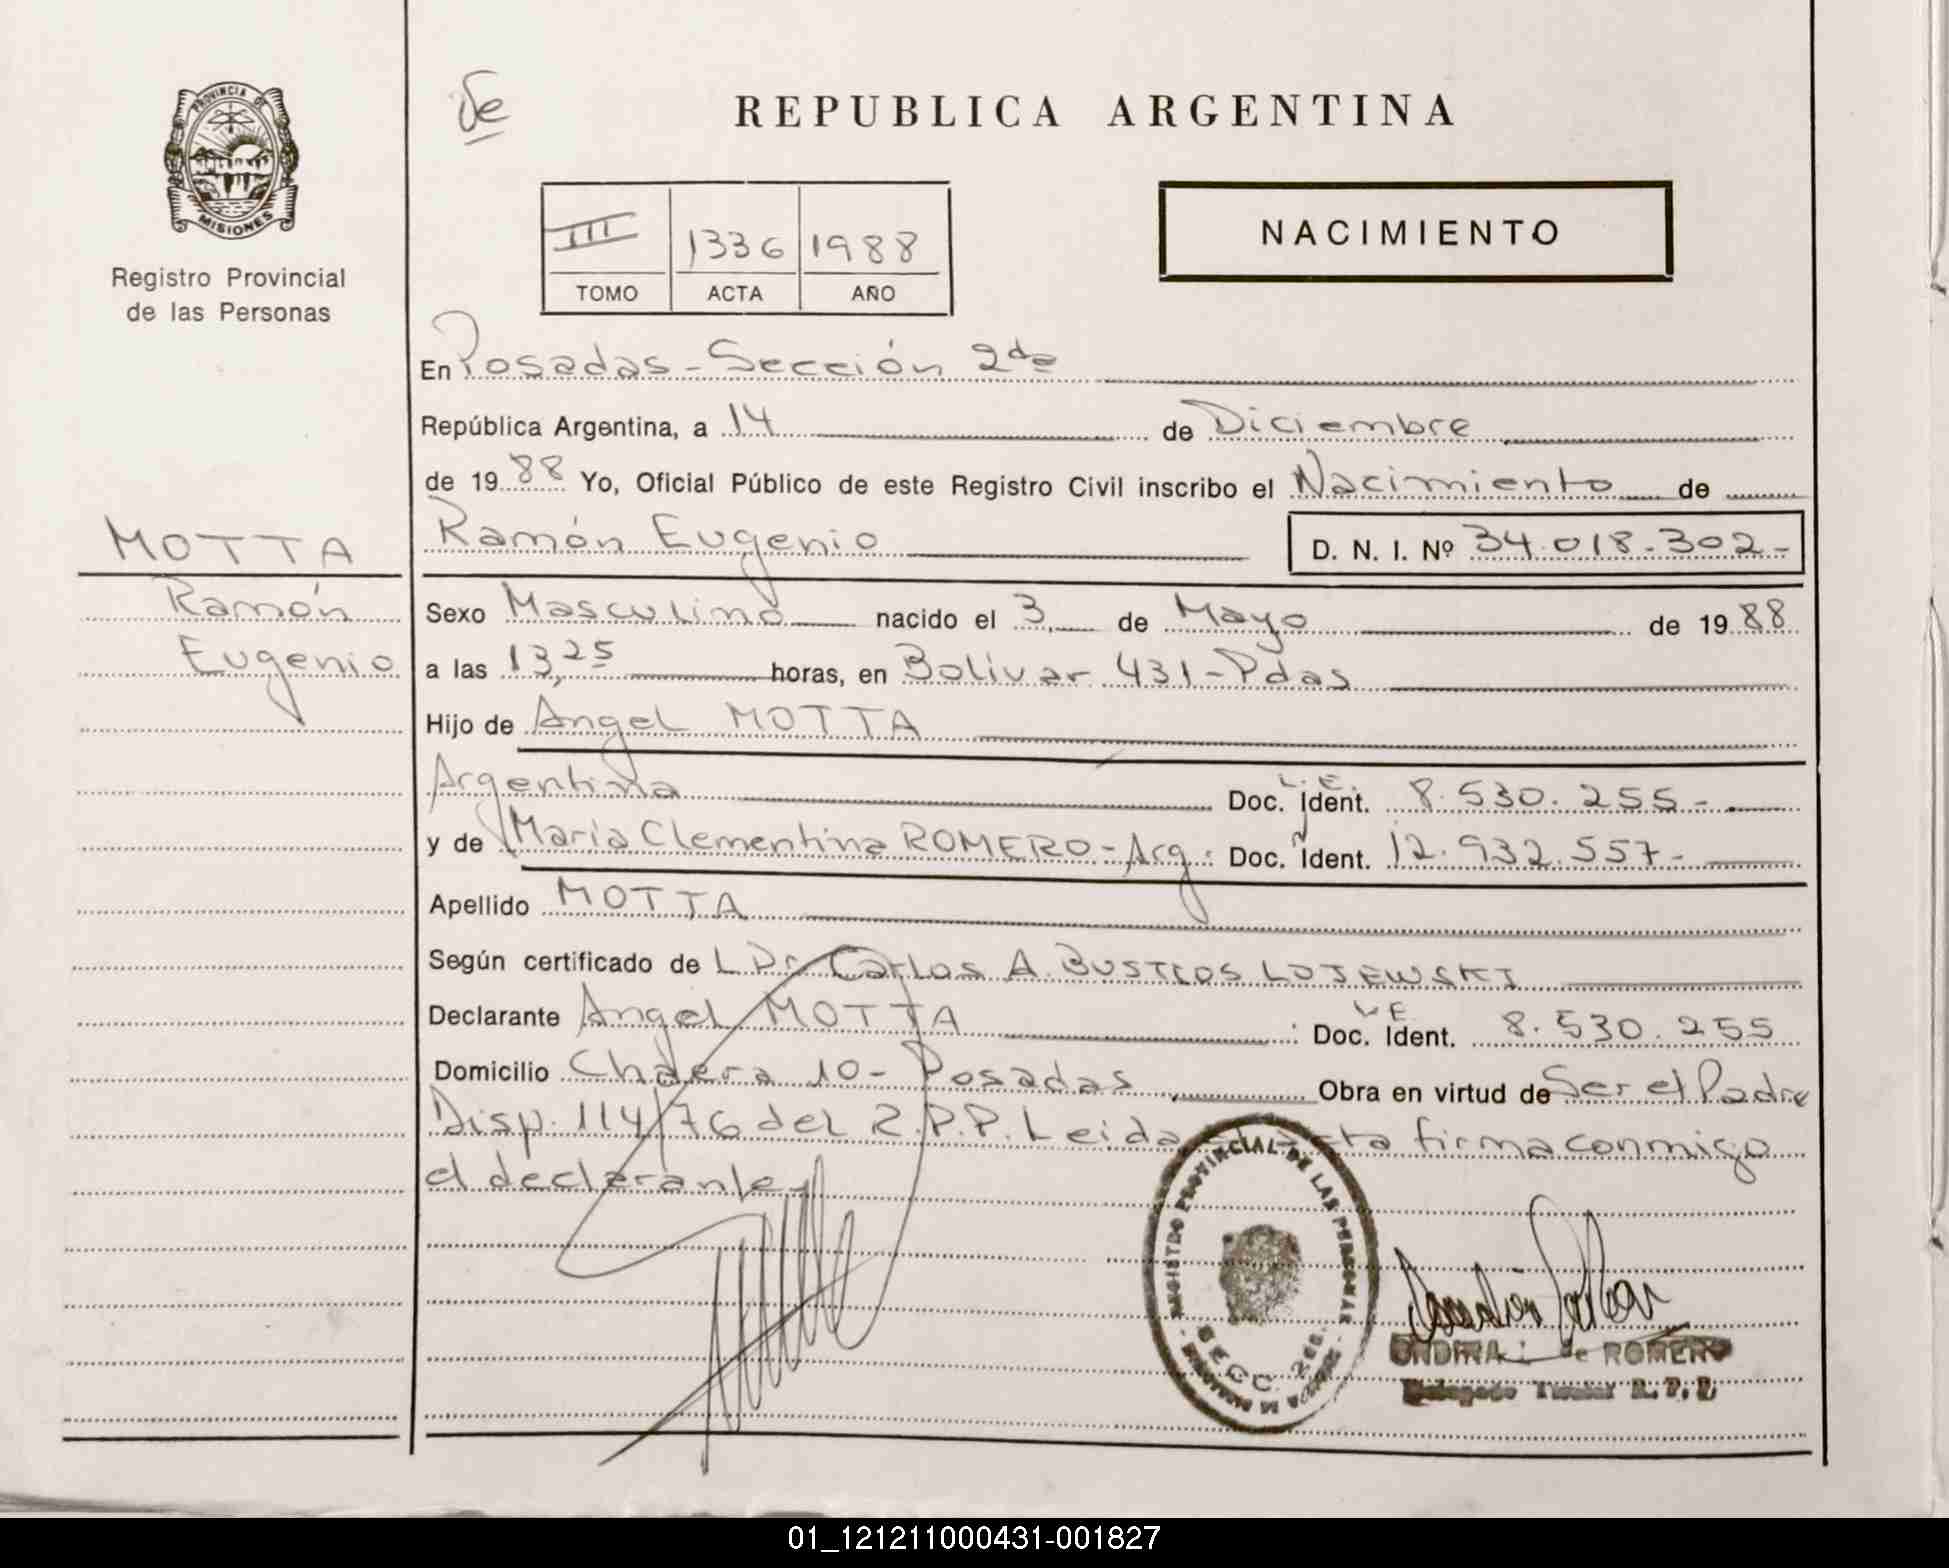 PROVINCIA DE
MISIONES
Registro Provincial
de las Personas
MOTTA
Ramón
Eugenio
REPUBLICA ARGENTINA
III 1336 1988
TOMO ACTA AÑO
NACIMIENTO
En Posadas - Sección 2da
República Argentina, a 14 de Diciembre
de 1988 Yo, Oficial Público de este Registro Civil inscribo el Nacimiento de
Ramón Eugenio D. N. I. Nº 34.018.302-
Sexo Masculino nacido el 3 de Mayo de 1988
a las 13,25 horas, en Bolivar 431-Pdas
Hijo de Angel MOTTA
Argentina Doc. Ident. L.E. 8.530.255-
y de María Clementina ROMERO - Arg. Doc. Ident. 12.932.557-
Apellido MOTTA
Según certificado de L Dr Carlos A. BUSTTOS LOJEWSKI
Declarante Angel MOTTA Doc. Ident. L E 8.530.255
Domicilio Chacra 10 - Posadas Obra en virtud de Ser el Padre
Disp. 114/76 del R.P.P. Leida acta firma conmigo
el declarante
REGISTRO PROVINCIAL DE LAS PERSONAS
SECC. 2da
ONDINA de ROMERO
Delegado Titular R. P. P.
01_121211000431-001827